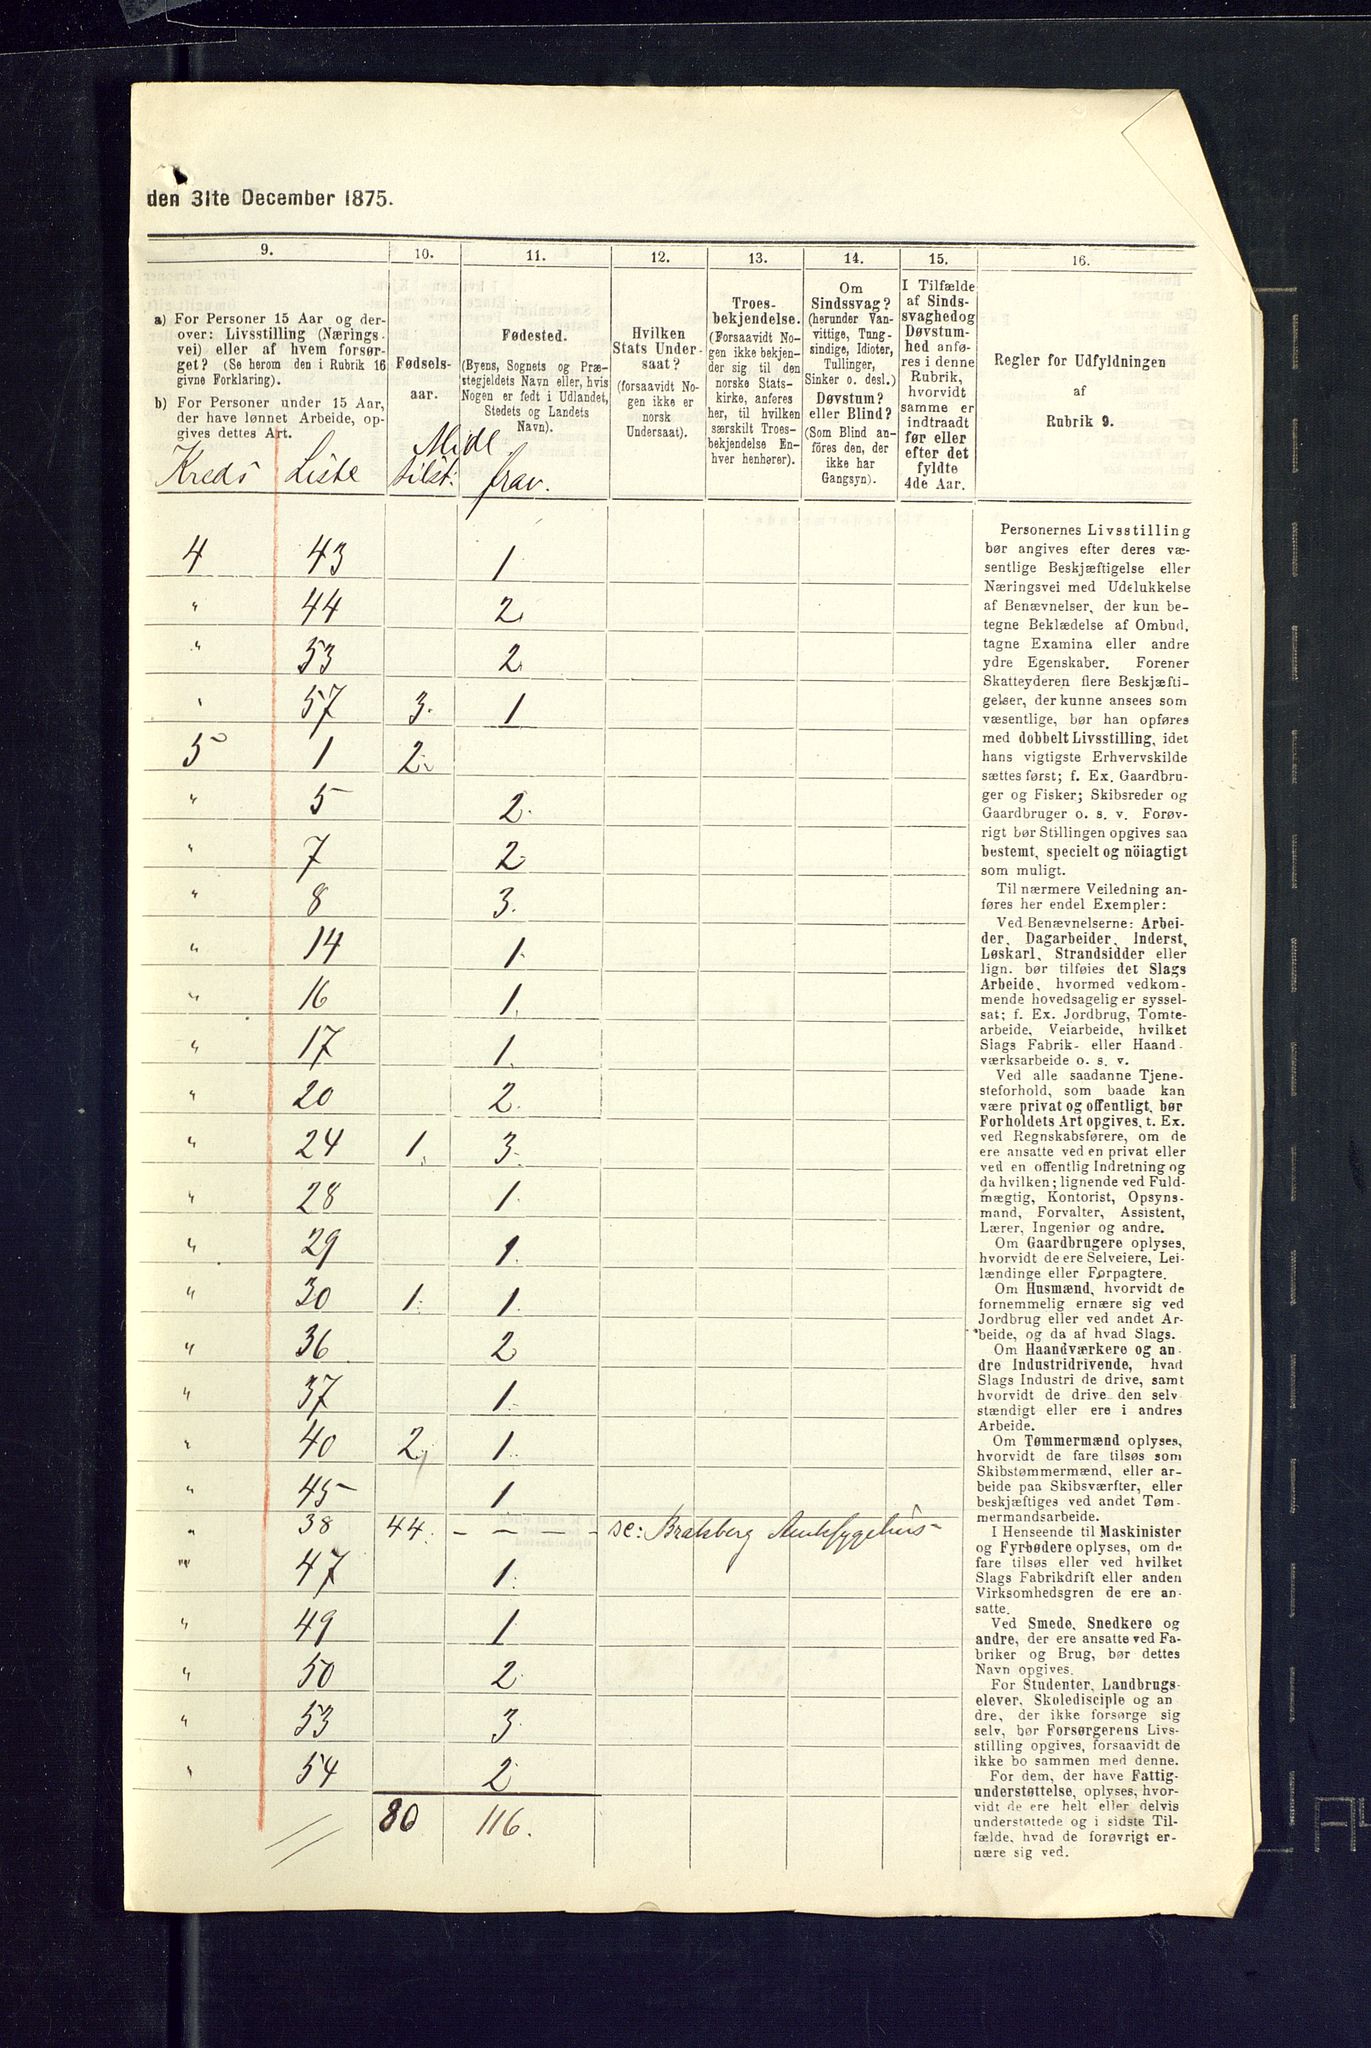 den 31te December 1875.
9.
a) For Personer 15 Aar og der-
over: Livsstilling (Nærings-
vei) eller af hvem forsør-
get? (Se herom den i Rubrik 16
givne Forklaring).
b) For Personer under 15 Aar,
der have lønnet Arbeide, op-
gives dettes Art.
10.
Fødsels-
aar.
11.
Fødested.
(Byens, Sognets og Præ-
stegjeldets Navn eller, hvis
Nogen er født i Udlandet,
Stedets og Landets
Navn).
12.
Hvilken
Stats Under-
saat?
(forsaavidt No-
gen ikke er
norsk
Undersaat).
13.
Troes-
bekjendelse.
(Forsaavidt No-
gen ikke bekjen-
der sig til den
norske Stats-
kirke, anføres
her, til hvilken
særskilt Troes-
bekjendelse En-
hver henhører).
14.
Om
Sindssvag?
(herunder Van-
vittige, Tung-
sindige, Idioter,
Tullinger,
Sinker o. desl.)
Døvstum?
eller Blind?
(Som Blind an-
föres den, der
ikke har
Gangsyn).
15.
I Tilfælde
af Sinds-
svaghedog
Døvstum-
hed anfø-
res i denne
Rubrik,
hvorvidt
samme er
indtraadt
før eller
efter det
fyldte
4de Aar.
16.
Regler for Udfyldningen
af
Rubrik 9.
Midl.
Kreds Liste tilst: frav.
4 43 1
" 44 2
" 53 2
" 57 3. 1
5 1 2.
" 5 2.
" 7 2
" 8 3.
" 14 1.
" 16 1.
" 17 1.
" 20 2.
" 24 1. 3.
" 28 1.
" 29 1.
" 30 1. 1.
" 36 2
" 37 1.
" 40 2, 1.
" 45 1
" 38 44. - - - - se: Bratsberg Amtssygehus
" 47 1.
" 49 1.
" 50 2.
" 53 3.
" 54 2
80 116.
Personernes Livsstilling
bør angives efter deres væ-
sentlige Beskjæftigelse eller
Næringsvei med Udelukkelse
af Benævnelser, der kun be-
tegne Beklædelse af Ombud,
tagne Examina eller andre
ydre Egenskaber. Forener
Skatteyderen flere Beskjæfti-
gelser, der kunne ansees som
væsentlige, bør han opføres
med dobbelt Livsstilling, idet
hans vigtigste Erhvervskilde
sættes først; f. Ex. Gaardbru-
ger og Fisker; Skibsreder og
Gaardbruger o. s. v. Forøv-
rigt bør Stillingen opgives saa
bestemt, specielt og nöiagtigt
som muligt.
Til nærmere Veiledning an-
føres her endel Exempler:
Ved Benævnelserne: Arbei-
der, Dagarbeider, Inderst,
Løskarl, Strandsidder eller
lign. bør tilføies det Slags
Arbeide, hvormed vedkom-
mende hovedsagelig er syssel-
sat; f. Ex. Jordbrug, Tomte-
arbeide, Veiarbeide, hvilket
Slags Fabrik- eller Haand-
værksarbeide o. s. v.
Ved alle saadanne Tjene-
steforhold, som baade kan
være privat og offentligt, bør
Forholdets Art opgives, t. Ex.
ved Regnskabsførere, om de
ere ansatte ved en privat eller
ved en offentlig Indretning og
da hvilken; lignende ved Fuld-
mægtig, Kontorist, Opsyns-
mand, Forvalter, Assistent,
Lærer, Ingeniør og andre.
Om Gaardbrugere oplyses,
hvorvidt de ere Selveiere, Lei-
lændinge eller Forpagtere.
Om Husmænd, hvorvidt de
fornemmelig ernære sig ved
Jordbrug eller ved andet Ar-
beide, og da af hvad Slags.
Om Haandværkere og an-
dre Industridrivende, hvad
Slags Industri de drive, samt
hvorvidt de drive den selv
stændigt eller ere i andres
Arbeide.
Om Tømmermænd oplyses,
hvorvidt de fare tilsøs som
Skibstømmermænd, eller ar-
beide paa Skibsværfter, eller
beskjæftiges ved andet Tøm-
mermandsarbeide.
I Henseende til Maskinister
og Fyrbødere oplyses, om de
fare tilsøs eller ved hvilket
Slags Fabrikdrift eller anden
Virksomhedsgren de ere an-
satte.
Ved Smede, Snedkere og
andre, der ere ansatte ved Fa-
briker og Brug, bør dettes
Navn opgives.
For Studenter, Landbrugs-
elever, Skoledisciple og an
dre, der ikke forsørge sig
selv, bør Forsørgerens Livs-
stilling opgives, forsaavidt de
ikke bo sammen med denne.
For dem, der have Fattig-
understøttelse, oplyses, hvor-
vidt de ere helt eller delvis
understøttede og i sidste Til-
fælde, hvad de forøvrigt er-
nære sig ved.